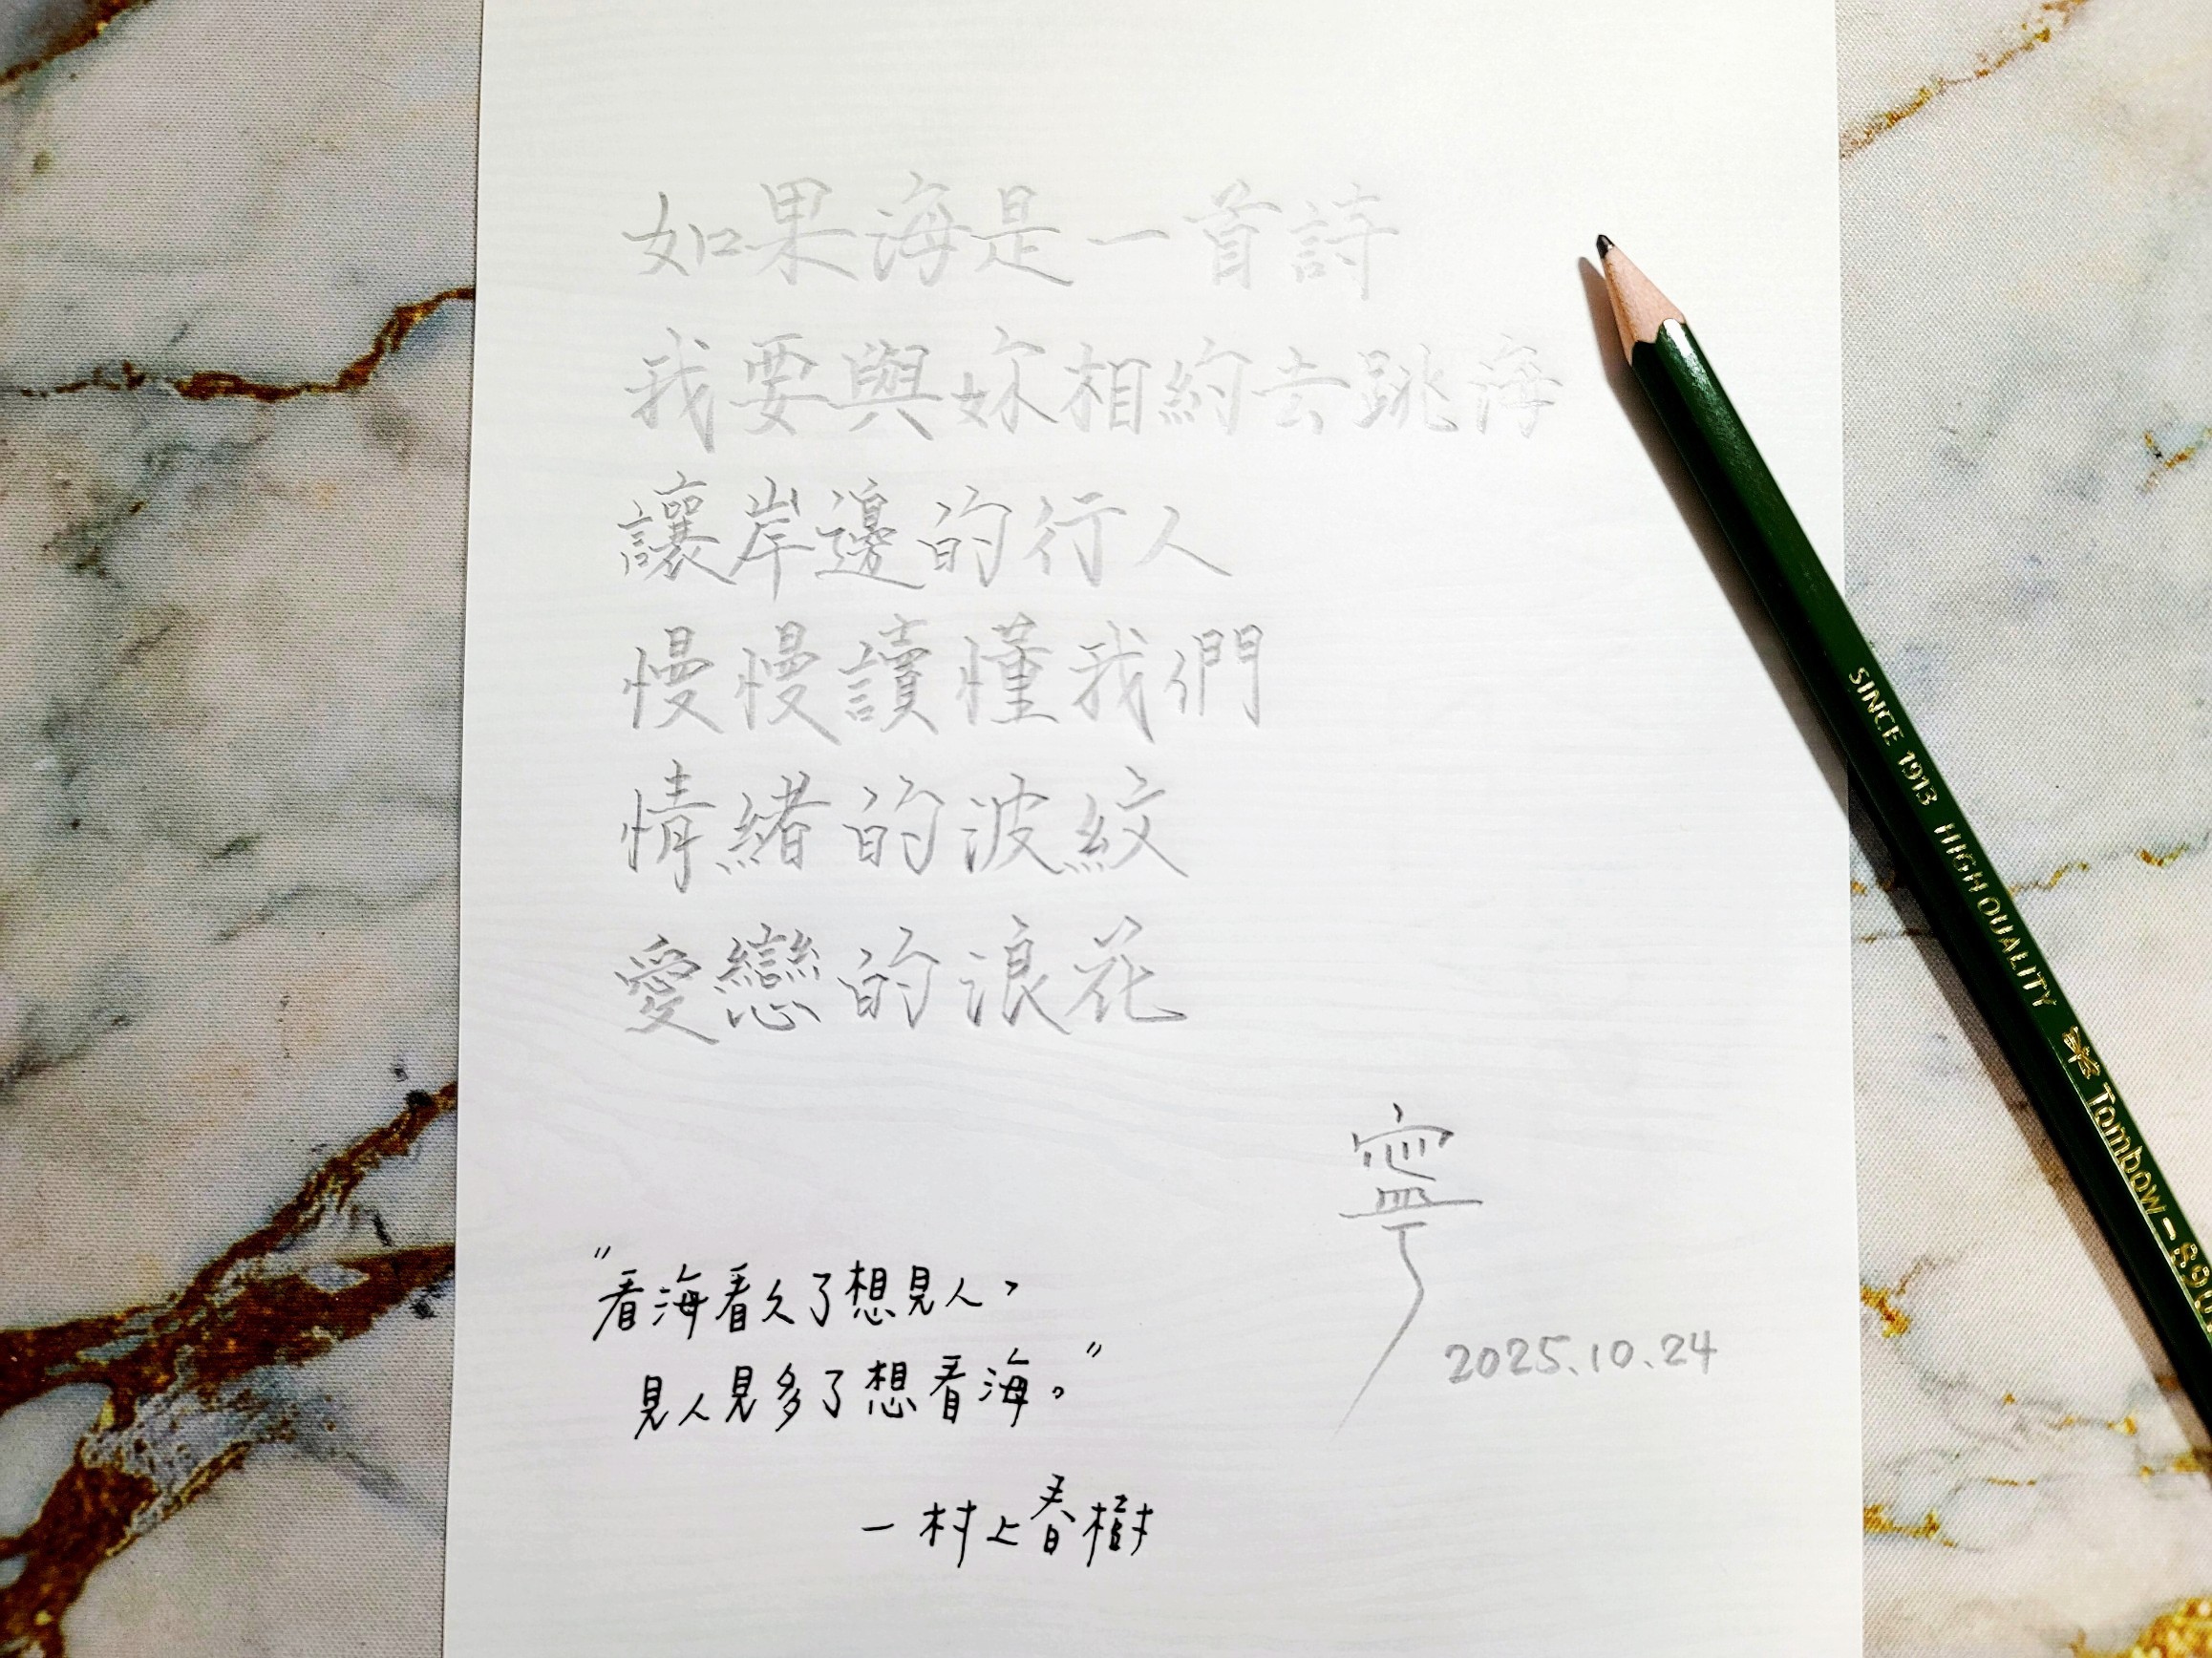 如果海是一首詩
我要與妳相約去跳海
讓岸邊的行人
慢慢讀懂我們
情緒的波紋
愛戀的浪花
寧
2025.10.24
"看海看久了想見人，
見人見多了想看海。"
—村上春樹
SINCE 1913 HIGH QUALITY Tombow-8900